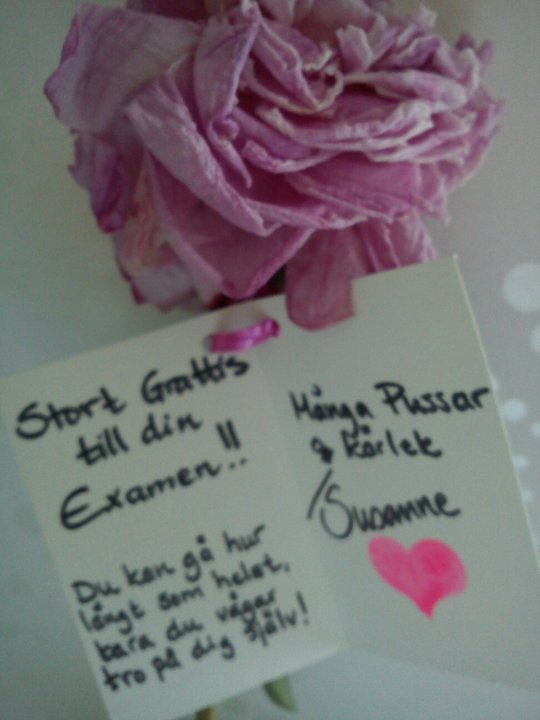 Stort Grattis
till din
Examen!!
Du kan gå hur
långt som helst,
bara du vågar
tro på dig själv!
Många Pussar
& kärlek
/Susanne